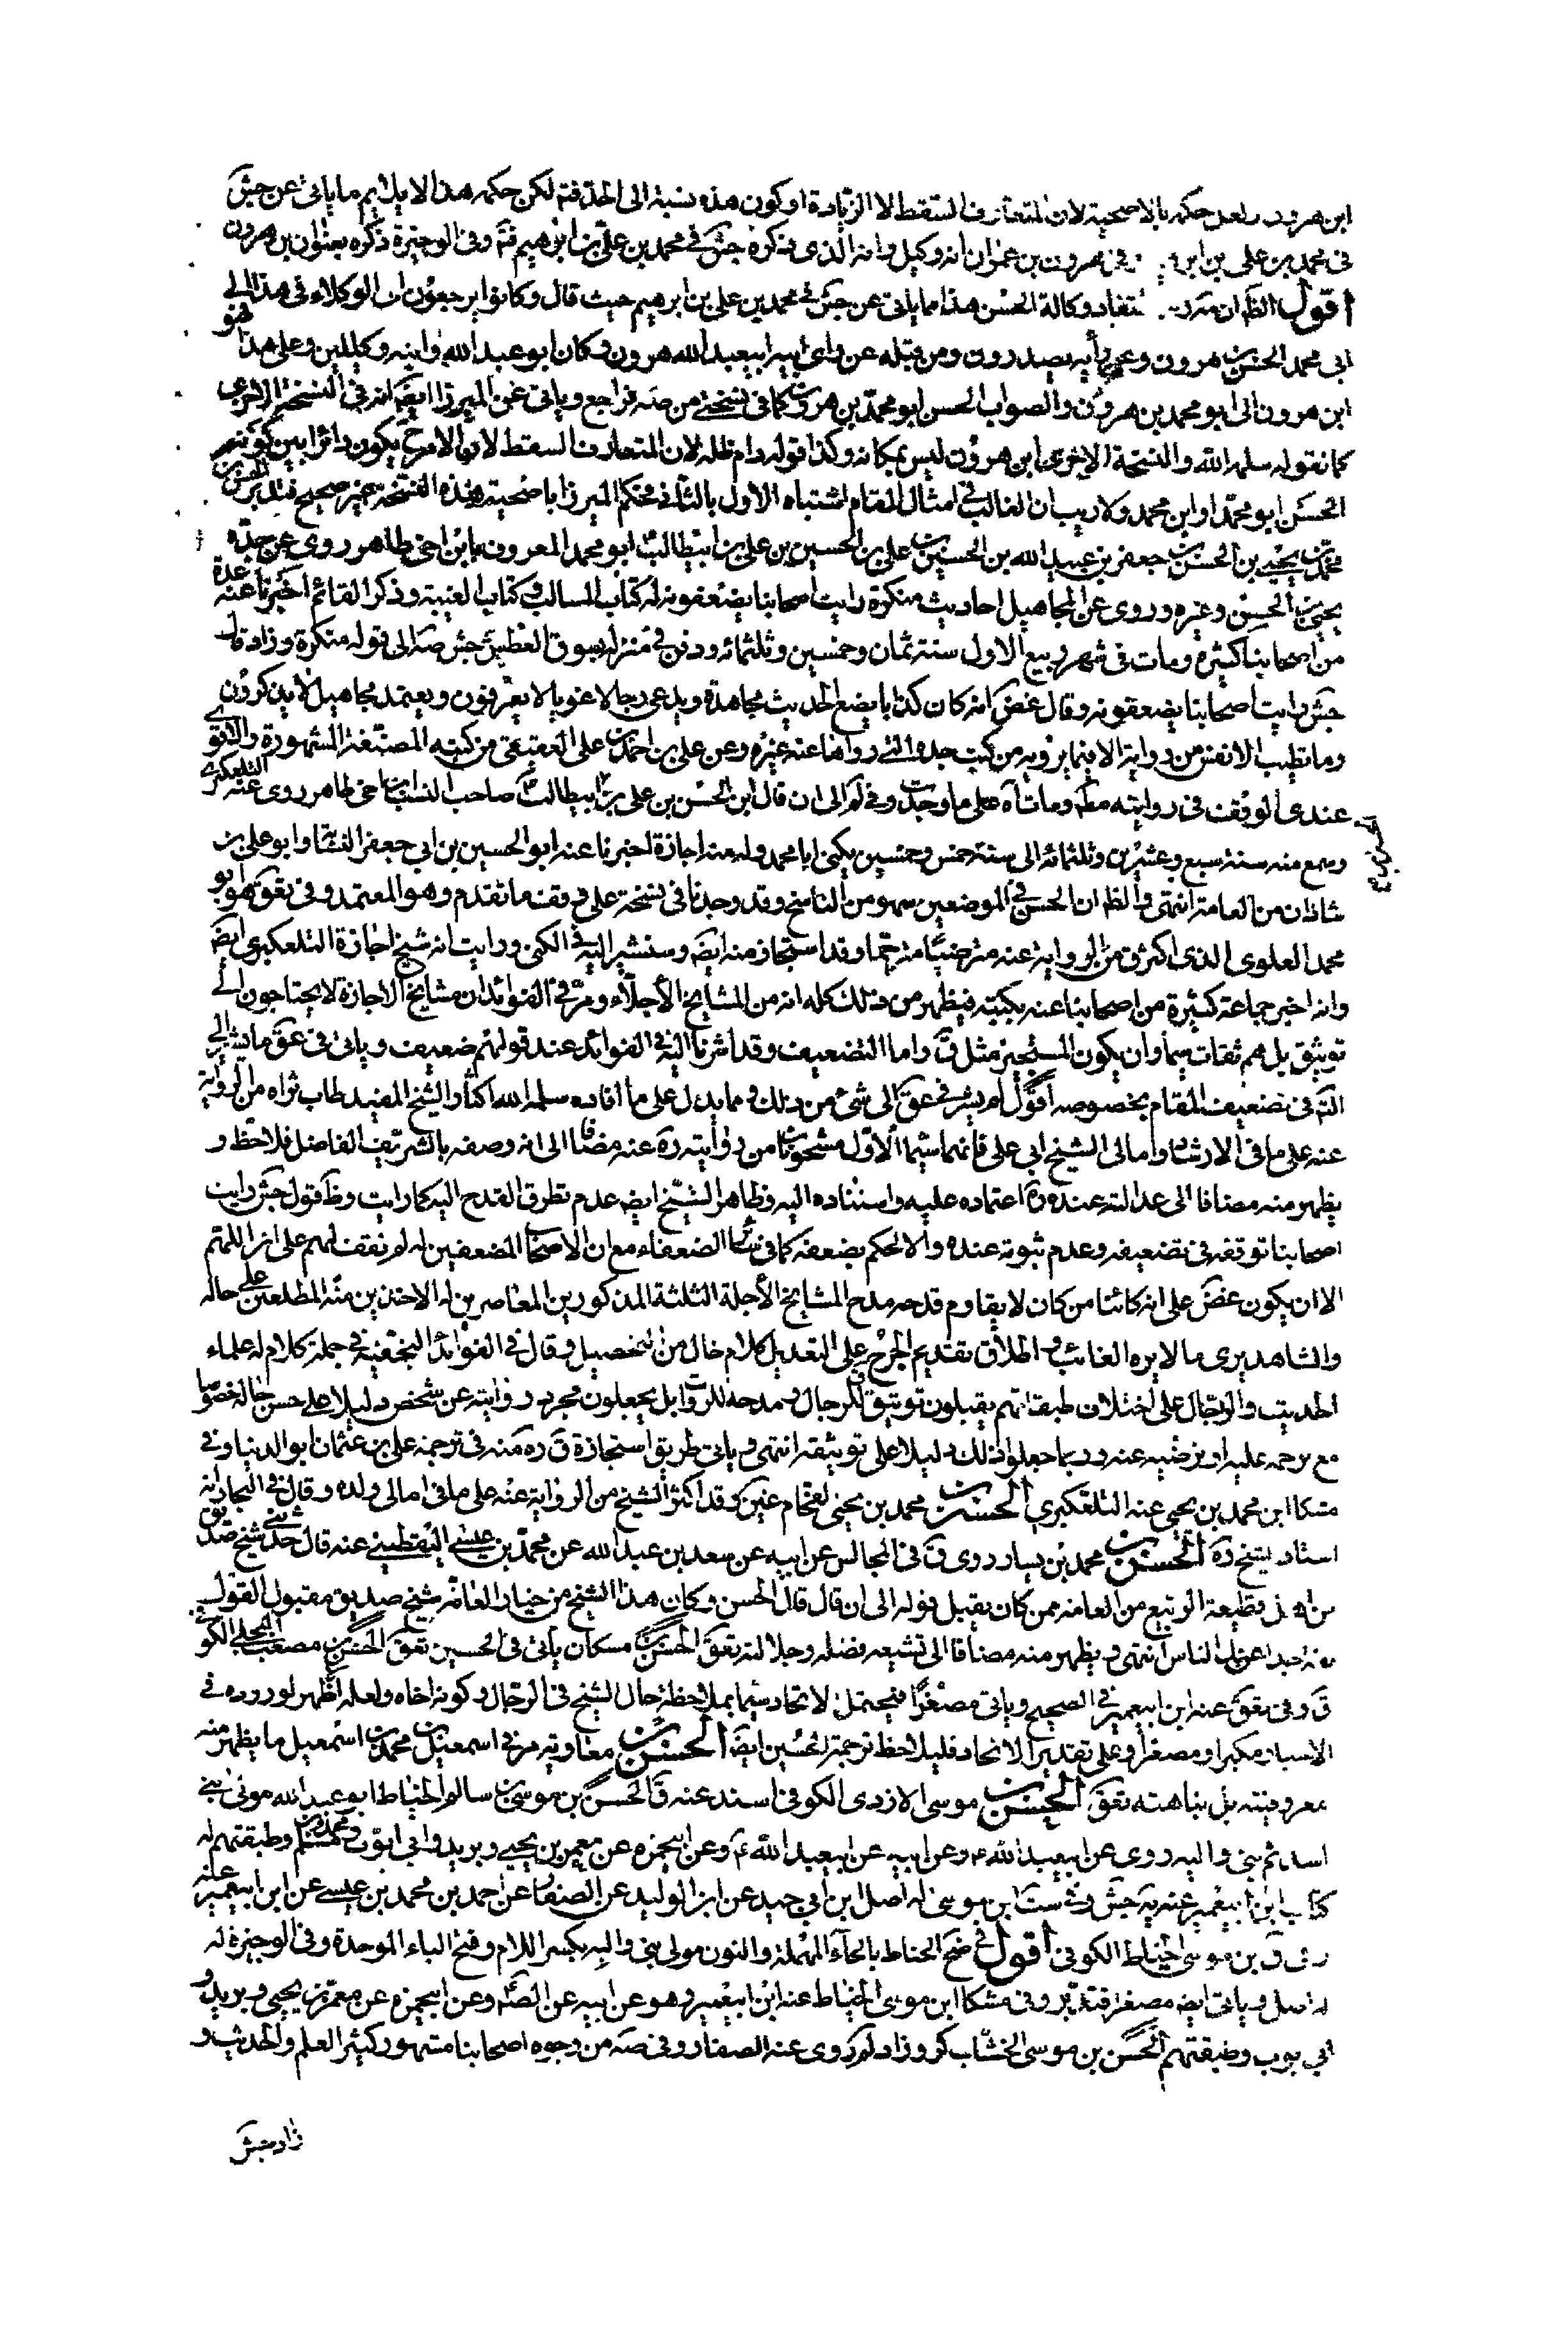 ابن هرون ولعل حكمه بالاصحية لان المتعارف السقط لا الزيادة او كون هذه نسبة الى الحذفة لكن حكمه هذا لا يلايم ما ياتى عن جش
فى محمد بن على بن ابر فى هرون بن عمران انه وكيل وانه الذى ذكره جش فى محمد بن على بن ابرهيم فتم وفى الوجيزة ذكره بعنوان بن هرون
اقول الظ ان مر وكالة الحسن هذا مما ياتى عن جش فى محمد بن على بن ابرهيم حيث قال وكانوا يرجعون ان الوكلاء فى هذا الى
ابى محمد الحسن بن هرون وعن رأيه يصدرون ومن قبله عن راى ابيه ابيعبد الله هرون وكان ابو عبد الله وابنه وكيلين وعلى هذا فهو
ابن هرون الى ابو محمد بن هرون والصواب الحسن ابو محمد بن هرون كما فى نسختى من صه فراجع وياتى عن الميرزا ايضا انه فى النسخة الاخرى
كما نقوله سلمه الله والنسخة الاخرى ابن هرون ليس بمكانه وكذا قوله دام ظله لان المتعارف السقط لان الامر ح يكون دائرا بين كونه
الحسن ابو محمد او ابن محمد ولا ريب ان الغالب فى امثال المقام اشتباه الاول بالثانى فحكم الميرزا باصحية هذه النسخة غير صحيح فتدبر الحسن بن
محمد بن يحيى بن الحسن بن جعفر بن عبيد الله بن الحسين بن على بن الحسين بن على بن ابيطالب ابو محمد المعروف بابن اخى طاهر روى عن جده
يحيى بن الحسن وغيره وروى عن المجاهيل احاديث منكرة رايت اصحابنا يضعفونه له كتاب المسالب وكتاب الغيبة وذكر القائم اخبرنا عنه عدة
من اصحابنا كثيرة ومات فى شهر ربيع الاول سنة ثمان وخمسين وثلثمائه ودفن فى منزله بسوق العطش جش صه الى قوله منكرة وزاد قال
جش رايت اصحابنا يضعفونه وقال غض انه كان كذابا يضع الحديث مجاهدة ويدعى رجالا غربا لا يعرفون ويعتمد مجاهيل لا يذكرون
وما تطيب الانفس من روايته الا فيما يرويه من كتب جده التى رواها عنه غيره وعن على بن احمد بن على العقيقى من كتبه المصنفة المشهورة والاقوى
عندى الوقف فى روايته مطه ومات اه على ما وجدت وفى لم الى ان قال ابن الحسن بن على بن ابيطالب صاحب النسب ابن اخى طاهر روى عنه التلعكبرى
وسمع منه سنة سبع وعشرين وثلثمائه الى سنة خمس وخمسين يكنى ابا محمد وله منه اجازة اخبرنا عنه ابو الحسين بن ابى جعفر النسابة وابو على بن
شاذان من العامة انتهى والظ ان الحسن فى الموضعين سهو من الناسخ وقد وجدنا فى نسخة على وفق ما تقدم وهو المعتمد وفى تعق هو ابو
محمد العلوى الذى اكثر ق من الرواية عنه مترضيا مترحما وقد استجاز منه ايضا وسنشير اليه فى الكنى ورايت انه شيخ اجازة التلعكبرى ايضا
وانه اخبر جماعة كثيرة من اصحابنا عنه بكتبه فيظهر من ذلك كله انه من المشايخ الاجلاء ومر فى الفوائد ان مشايخ الاجازة لا يحتاجون الى
توثيق بل هم ثقات سيما وان يكون المستجيز مثل ق واما التضعيف وقد اشرنا اليه فى الفوائد عند قولهم ضعيف وياتى فى عق ما يشير الى
التم فى تضعيف المقام بخصوصه اقول لم يشر فى عق الى شئ من ذلك ومما يدل على ما افاده سلمه الله اكثار الشيخ المفيد طاب ثراه من الرواية
عنه على ما فى الارشاد وامالى الشيخ ابى على فانهما سيما الاول مشحون من روايته ره عنه مضافا الى انه وصفه بالشريف الفاضل فلاحظ و
يظهر منه مضافا الى عدالته عنده ره اعتماده عليه واستناده اليه وظاهر الشيخ ايضا عدم تطرق القدح اليه كما رايت وظ قول جش رايت
اصحابنا توقفه فى تضعيفه وعدم ثبوته عنده والا لحكم بضعفه كما فى سائر الضعفاء مع ان الاصحاب المضعفين له لم نقف لهم على اثر اللهم
الا ان يكون غض على انه كائنا من كان لا يقاوم قدحه مدح المشايخ الاجلة الثلثة المذكورين المعاصرين له الاخذين منه المطلعين على حاله
والشاهد يرى ما لا يره الغائب واطلاق تقديم الجرح على التعديل كلام خال من التحصيل وقال فى الفوائد النجفية فى جملة كلام له علماء
الحديث والرجال على اختلاف طبقاتهم يقبلون توثيق ق للرجال ومدحه للرواة بل يجعلون مجرد روايته عن شخص دليلا على حسن حاله خصوصا
مع ترحمه عليه او ترضيه عنه وربما جعلوا ذلك دليلا على توثيقه انتهى وياتى طريق استجازة ق ره منه فى ترجمة على بن عثمان ابو الدنيا وفى
مشكا ابن محمد بن يحيى عنه التلعكبرى الحسن بن محمد بن يحيى الفحام غير كر قد اكثر الشيخ من الرواية عنه على ما فى امالى ولده وقال فى البحار انه
استاد الشيخ ره الحسن بن محمد بن يسار روى ق فى المجالس عن ابيه عن سعد بن عبد الله عن محمد بن عيسى اليقطينى عنه قال حدثنى شيخ صدق
من اهل قطيعة الربيع من العامة ممن كان يقبل قوله الى ان قال قال الحسن وكان هذا الشيخ من خيار العامة شيخ صديق مقبول القول
عند الناس انتهى ويظهر منه مضافا الى تشيعه فضله وجلالته تعق الحسن بن مسكان ياتى فى الحسين تعق الحسن بن مصعب البجلى الكوفى
ق وفى تعق عنه ابن ابيعمير فى الصحيح وياتى مصغرا فيحتمل الاتحاد سيما بملاحظة حال الشيخ فى الرجال وكونه اخاه ولعله اظهر لوروده فى
الاسناد مكبرا ومصغرا وعلى تقدير الاتحاد فليلاحظ ترجمة الحسين ايضا الحسن بن معاوية مر فى اسمعيل بن محمد بن اسمعيل ما يظهر منه
معروفيته بل نباهته تعق الحسن بن موسى الازدى الكوفى اسند عنه ق الحسن بن موسى بن سالم الحناط ابو عبد الله مولى بنى
اسد ثم بنى والبه روى عن ابيعبد الله ع وعن ابيه عن ابيعبد الله ع وعن ابيحمزه عن معمر بن يحيى وبريد وابى ايوب ومحمد بن مسلم وطبقتهم له
كتاب ابن ابيعمير عنه به جش وفى ست ابن موسى له اصل ابن ابى جيد عن ابن الوليد عن الصفار عن احمد بن محمد بن عيسى عن ابن ابيعمير عنه
وفى ق بن موسى الحناط الكوفى اقول فى ضح الحناط بالحاء المهملة والنون مولى بنى والبه بكسر اللام وفتح الباء الموحدة وفى الوجيزة له
له اصل وياتى ايضا مصغرا فتدبر وفى مشكا ابن موسى الحناط عنه ابن ابيعمير وهو عن ابيه عن الصه وعن ابيحمزه عن معمر بن يحيى وبريد و
ابى ايوب وطبقتهم الحسن بن موسى الخشاب كر وزاد لم روى عنه الصفار وفى صه من وجوه اصحابنا مشهور كثير العلم والحديث و
زاد جش